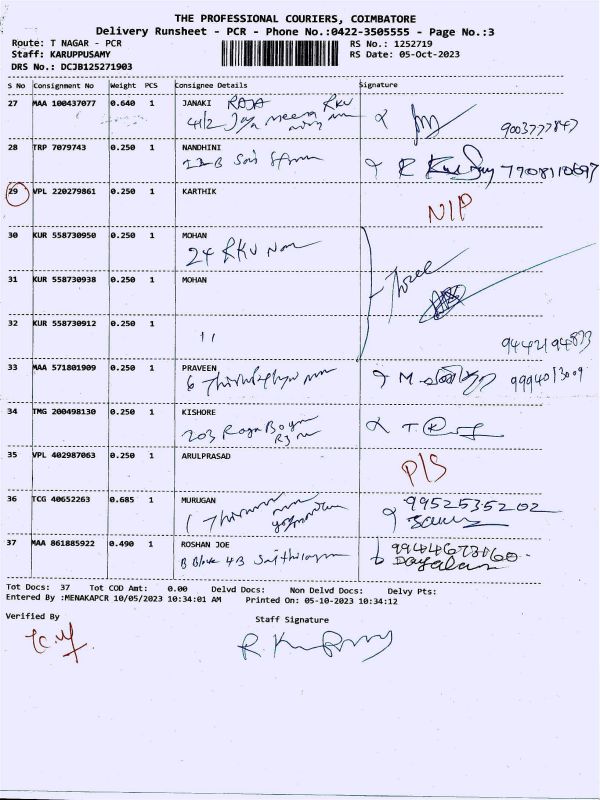 THE PROFESSIONAL COURIERS, COIMBATORE
Delivery Runsheet - PCR - Phone No.:0422-3505555 - Page No.:3
Route: T NAGAR - PCR RS No.: 1252719
Staff: KARUPPUSAMY RS Date: 05-Oct-2023
DRS No.: DCJB125271903
S No Consignment No Weight PCS Consignee Details Signature
27 MAA 100437077 0.640 1 JANAKI RAJA RKV
41/2 Jaya
9003777847
28 TRP 7079743 0.250 1 NANDHINI
7708110697
29 VPL 220279861 0.250 1 KARTHIK
N/P
30 KUR 558730950 0.250 1 MOHAN
24 RKV
31 KUR 558730938 0.250 1 MOHAN
Three
32 KUR 558730912 0.250 1
11
9442194873
33 MAA 571801909 0.250 1 PRAVEEN
6
M 9994013009
34 TMG 200498130 0.250 1 KISHORE
203
35 VPL 402987063 0.250 1 ARULPRASAD
P/S
36 TCG 40652263 0.685 1 MURUGAN
9952535202
37 MAA 861885922 0.490 1 ROSHAN JOE
B Block 4B
Dayalan
Tot Docs: 37 Tot COD Amt: 0.00 Delvd Docs: Non Delvd Docs: Delvy Pts:
Entered By :MENAKAPCR 10/05/2023 10:34:01 AM Printed On: 05-10-2023 10:34:12
Verified By Staff Signature